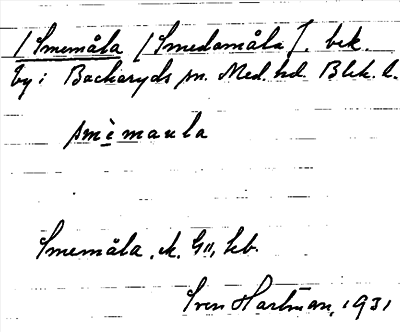 [Smemåla [Smedamåla]. bek.
by i Backaryds sn. Med. hd. Blek. l.
smèmaula
Smemåla, A. G11, kb.
Sven Hartman, 1931